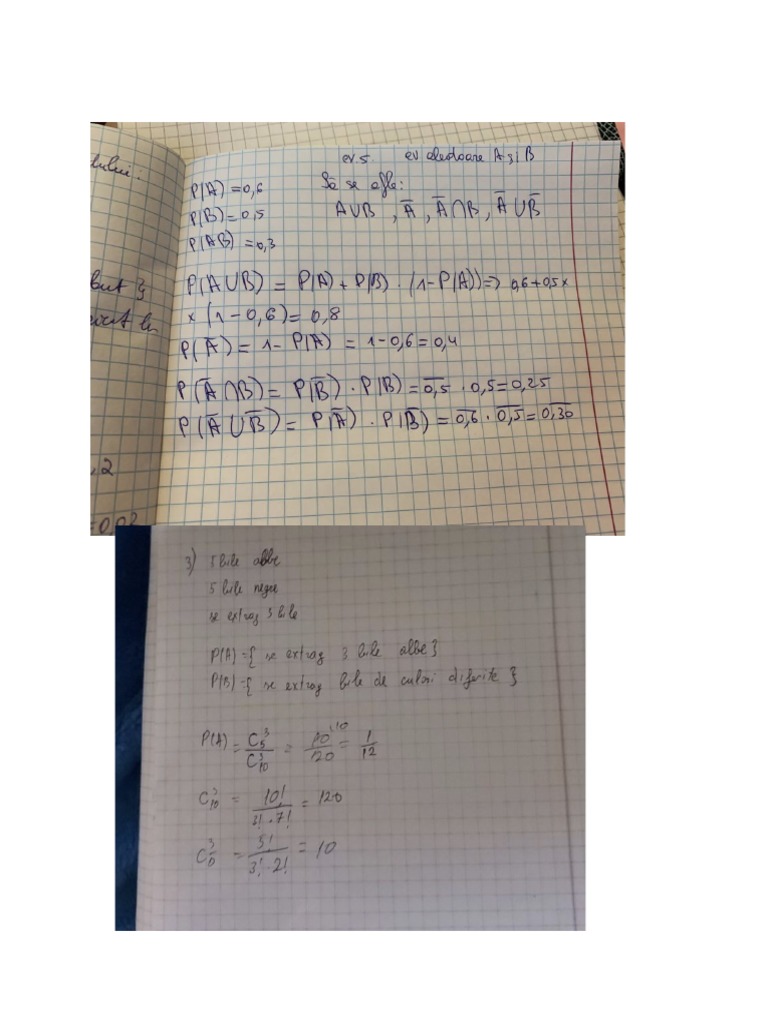 ex.5. ev aleatoare A și B
P(A) = 0,6 Să se afle:
P(B) = 0,5 A∪B , A̅ , A̅∩B , A̅∪B̅
P(AB) = 0,3
P(A∪B) = P(A) + P(B) · (1-P(A)) => 0,6+0,5×
× (1-0,6) = 0,8
P(A̅) = 1 - P(A) = 1-0,6 = 0,4
P(A̅∩B) = P(B̅) · P(B) = 0,5̅ · 0,5 = 0,25
P(A̅∪B̅) = P(A̅) · P(B̅) = 0,6̅ · 0,5̅ = 0,30̅
,2
=0,03
3) 5 bile albe
5 bile negre
se extrag 3 bile
P(A)={ se extrag 3 bile albe }
P(B)={ se extrag bile de culori diferite }
P(A) = C₅³/C₁₀³ = 10/120 ⁽¹⁰ = 1/12
C₁₀³ = 10!/(3! · 7!) = 120
C₅³ = 5!/(3! · 2!) = 10